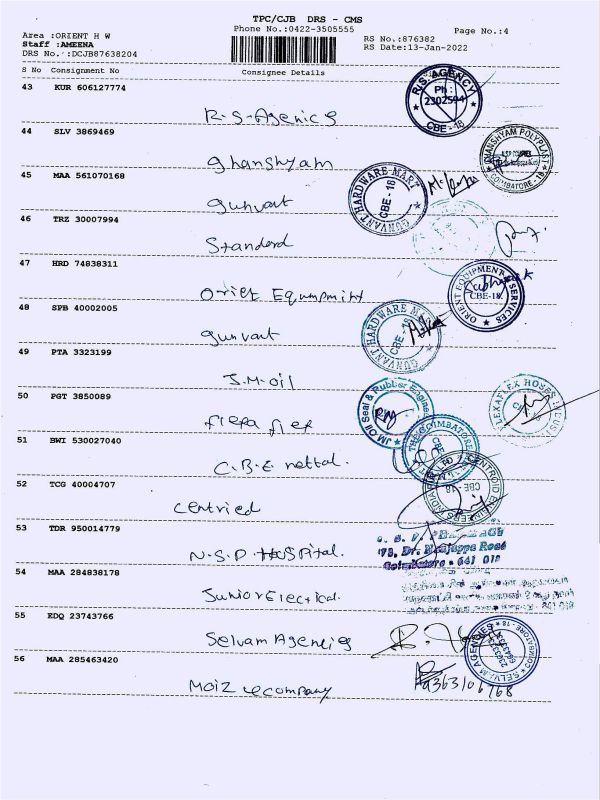 TPC/CJB DRS - CMS
Phone No.:0422-3505555
Page No.:4
Area :ORIENT H W
Staff :AMEENA
DRS No.:DCJB87638204
RS No.:876382
RS Date:13-Jan-2022
S No Consignment No Consignee Details
43 KUR 606127774
R.S-Agenics
R.S. AGENCY
Ph :
2302594
CBE - 18
44 SLV 3869469
Ghanshyam
GHANSHYAM POLYPLAST
COIMBATORE - 18
45 MAA 561070168
Gunvant
GUNVANT HARDWARE MART
CBE - 18
46 TRZ 30007994
Standard
47 HRD 74838311
Oriet Equnpmint
ORIENT EQUIPMENT SERVICES
CBE-18
48 SPB 40002005
Gunvant
GUNVANT HARDWARE MART
CBE - 18
49 PTA 3323199
J.M.oil
JM Oil Seal & Rubber Engine
50 PGT 3850089
flexa flex
51 BWI 530027040
C.B.E nettal.
THE COIMBATORE
52 TCG 40004707
Centried
CENTROID
CBE - 18
53 TDR 950014779
N.S.P. Hospital.
Coimbatore - 641 018
54 MAA 284838178
Junior Electical.
55 EDQ 23743766
Selvam Agencies
SELVAM AGENCIES
COIMBATORE - 18
56 MAA 285463420
Moiz & company